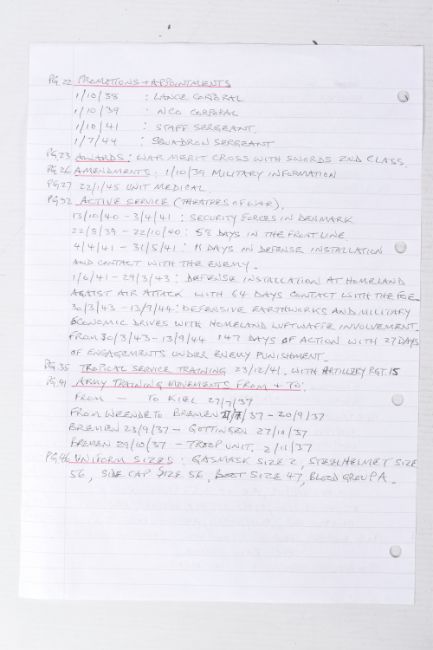 PG.22 PROMOTIONS + APPOINTMENTS
1/10/38 : LANCE CORPORAL
1/10/39 : NCO CORPORAL
1/10/41 : STAFF SERGEANT.
1/7/44 : SQUADRON SERGEANT
PG.23 AWARDS: WAR MERIT CROSS WITH SWORDS 2ND CLASS.
PG.26 AMENDMENTS: 1/10/39 MILITARY INFORMATION
PG.27 22/1/45 UNIT MEDICAL
PG.32 ACTIVE SERVICE (THEATRES OF WAR).
13/10/40 - 3/4/41 : SECURITY FORCES IN DENMARK
22/8/39 - 22/10/40 : 58 DAYS IN THE FRONT LINE
4/4/41 - 31/5/41 : 11 DAYS ON DEFENSE INSTALLATION
AND CONTACT WITH THE ENEMY.
1/6/41 - 29/3/43 : DEFENSE INSTALLATION AT HOMELAND
AGAIST AIR ATTACK WITH 64 DAYS CONTACT WITH THE FOE
30/3/43 - 13/9/44 : DEFENSIVE EARTHWORKS AND MILITARY
ECONOMIC DRIVES WITH HOMELAND LUFTWAFFE INVOLVEMENT.
FROM 30/3/43 - 13/9/44 147 DAYS OF ACTION WITH 27 DAYS
OF ENGAGEMENTS UNDER ENEMY PUNISHMENT.
PG.35 TROPICAL SERVICE TRAINING 23/12/41. WITH ARTILLERY RGT. 15
PG.41 ARMY TRAINING MOVEMENTS FROM + TO:
FROM - TO KIEL 27/7/37
FROM WEENDE TO BREMEN 37 - 20/9/37
BREMEN 23/9/37 - GOTTINGEN 27/10/37
BREMEN 29/10/37 - TROOP UNIT. 2/11/37
PG.46 UNIFORM SIZES : GASMASK SIZE 2, STEELHELMET SIZE
56, SIDE CAP SIZE 56, BOOT SIZE 47, BLOOD GROUP A.